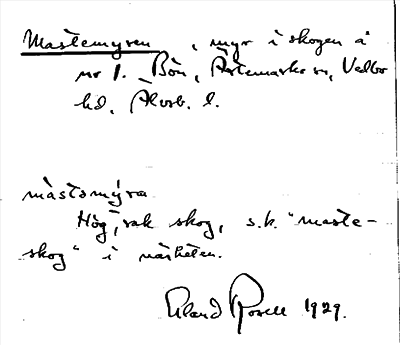 Mastemyren, myr i skogen å
nr 1. Bön, Ärtemarks sn, Vedbo
hd, Älvsb. l.
màstəmýra
Hög, rak skog, s.k. "maste-
skog" i närheten.
Erland Rosell 1929.